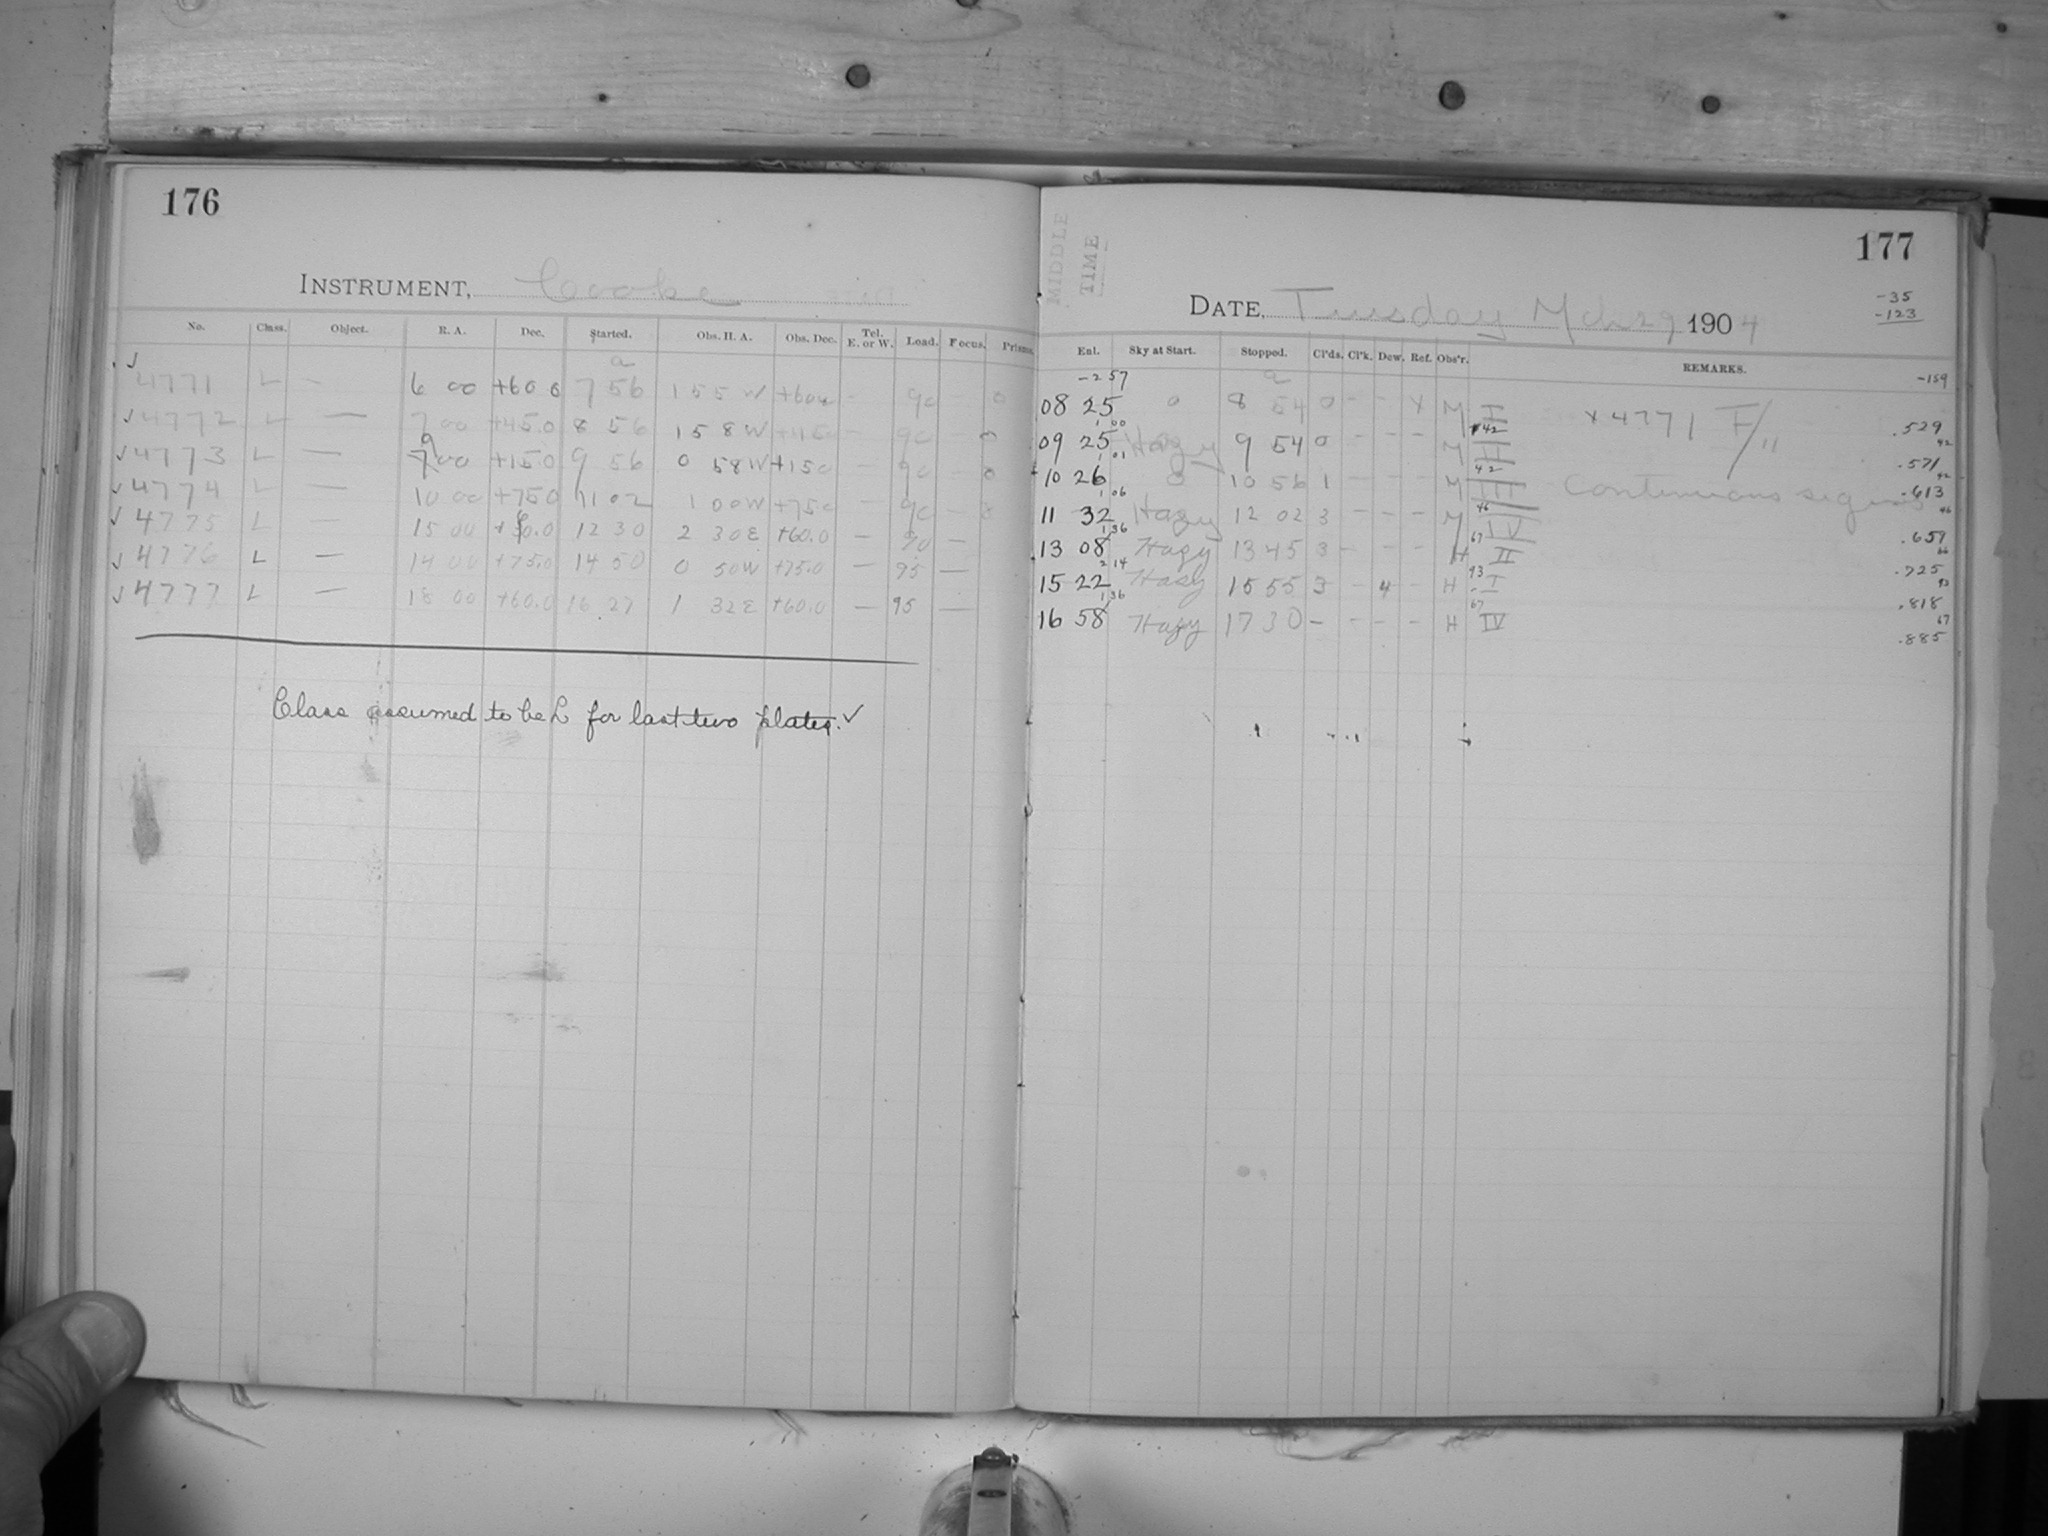 176
INSTRUMENT, Cooke
No. Class. Object. R. A. Dec. Started. Obs. H. A. Obs. Dec. Tel. E. or W. Load. Focus. Prisms.
a
✓ 4771 L — 6 00 +60 0 7 56 1 55 W +600 — 90 — 0
✓ 4772 L — 7 00 +45.0 8 56 1 58 W +450 — 90 — 0
✓ 4773 L — 9 00 +15 0 9 56 0 58 W +150 — 90 — 0
✓ 4774 L — 10 00 +75 0 11 02 1 00 W +750 — 90 — 0
✓ 4775 L — 15 00 +60.0 12 30 2 30 E +60.0 — 90 —
✓ 4776 L — 14 00 +75.0 14 50 0 50 W +75.0 — 95 —
✓ 4777 L — 18 00 +60.0 16 27 1 32 E +60.0 — 95 —
Class assumed to be L for last two plates. ✓
MIDDLE
TIME
177
DATE, Tuesday Mch 29 1904
-35
-123
Enl. Sky at Start. Stopped. Cl'ds. Cl'k. Dew. Ref. Obs'r. REMARKS.
-159
-2 57
a
08 25 0 8 54 0 — — X M I x 4771 F/" .529
1 00 42 42
09 25 Hazy 9 54 0 — — — M II .571
1 01 42 42
10 26 0 10 56 1 — — — M III Continuous .613
1 06 46 46
11 32 Hazy 12 02 3 — — — M IV .659
1 36 67 66
13 08 Hazy 13 45 3 — — — H II .725
2 14 93 93
15 22 Hazy 15 55 3 — 4 — H I .818
1 36 67 67
16 58 Hazy 17 30 — — — — H IV .885